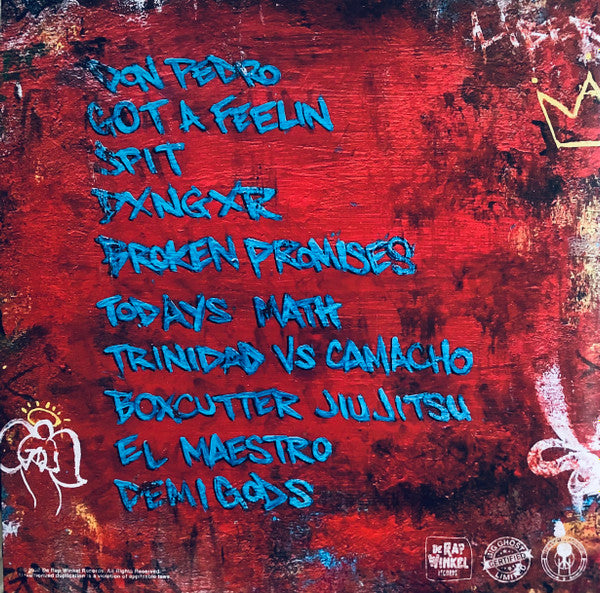 LIBER
DON PEDRO
GOT A FEELIN
SPIT
DXNGXR
BROKEN PROMISES
TODAYS MATH
TRINIDAD VS CAMACHO
BOXCUTTER JIUJITSU
EL MAESTRO
DEMIGODS
De Rap Winkel Records. All Rights Reserved.
Unauthorized duplication is a violation of applicable laws.
DE RAP
WINKEL
RECORDS
BIG GHOST
CERTIFIED
LIMITED